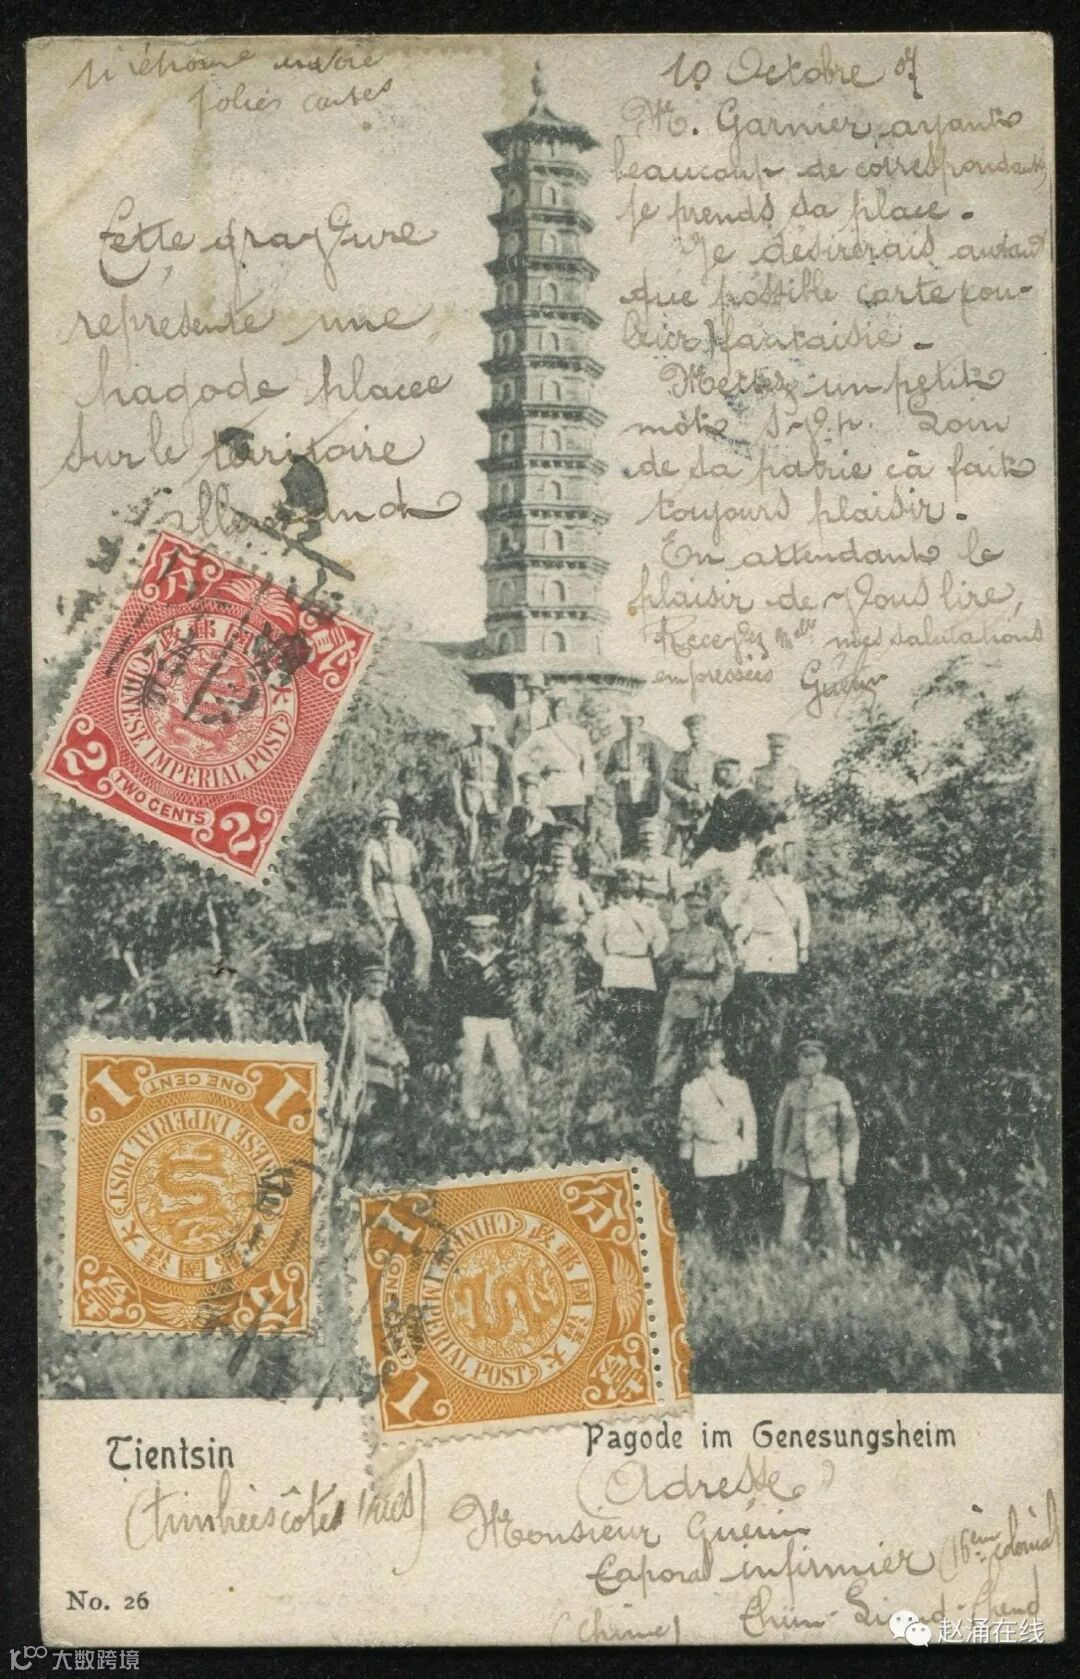 jolies cartes
Cette gravure
représente une
pagode placée
sur le territoire
allemand
10 Octobre 07
M. Garnier ayant
beaucoup de correspondants
je prends sa place.
Je désirerais autant
que possible carte cou-
leur fantaisie.
Mettez un petit
mot S.V.p. Loin
de sa patrie cà fait
toujours plaisir.
En attendant le
plaisir de vous lire,
Recevez Melle mes salutations
empressées Guérin
分 大清國郵政 壹
CHINESE IMPERIAL POST
2 TWO CENTS 2
1 ONE CENT 1
CHINESE IMPERIAL POST
大清國郵政
壹 分
分 大清國郵政 壹
CHINESE IMPERIAL POST
1 ONE CENT 1
Tientsin
Pagode im Genesungsheim
(timbrées côtés vues)
(Adresse)
Monsieur Guérin
Caporal infirmier (16ème colonial)
(Chine)
No. 26
赵涌在线
大数跨境